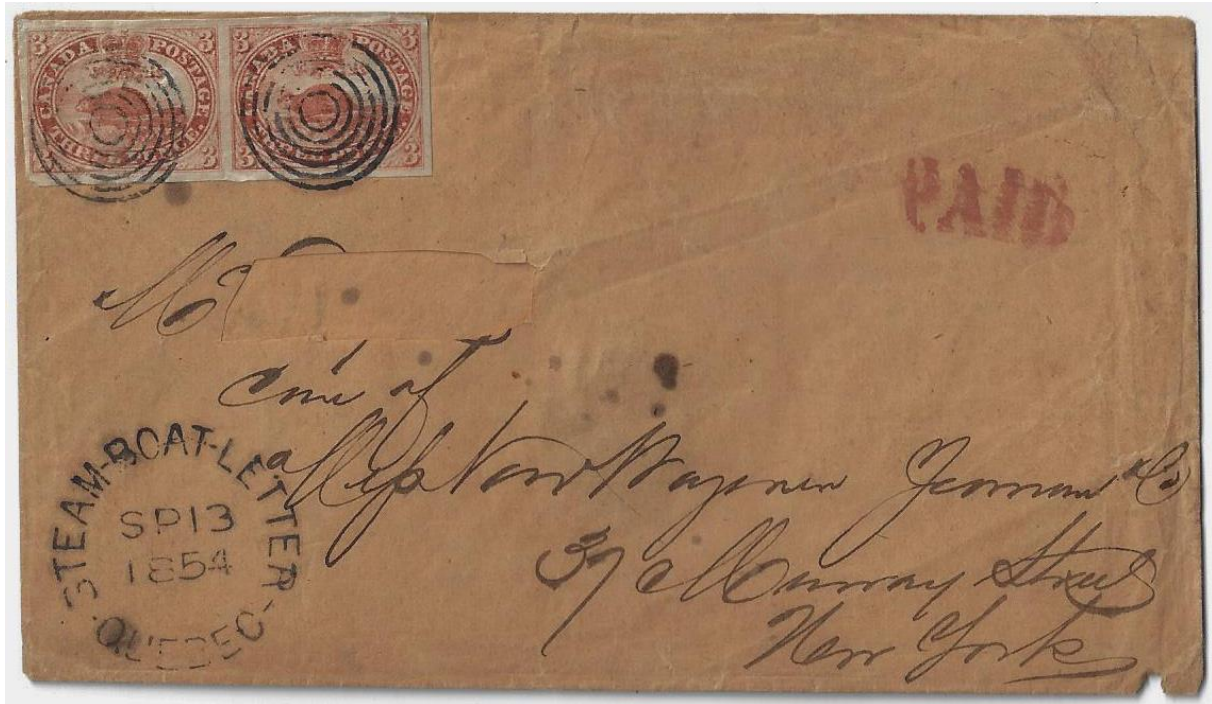 3 CANADA POSTAGE. 3
3 THREE PENCE. 3
3 CANADA POSTAGE. 3
3 3
PAID
Mr
Care of
Mess Van Wagenen Yeoman & Co
37 Murray Street
New York
STEAM-BOAT-LETTER-
SP13
1854
QUEBEC